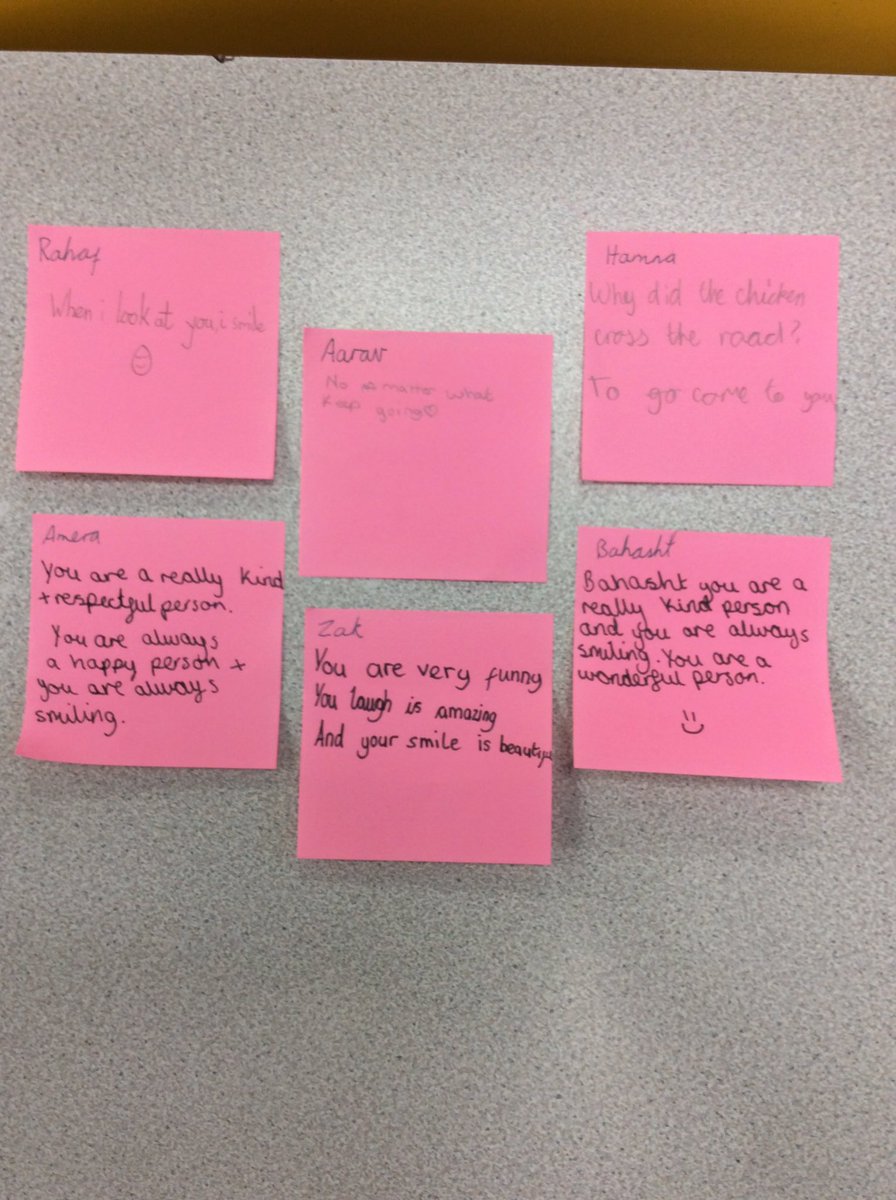 Rahaf
When i look at you, i smile
Aarav
No matter what
Keep going
Hamna
Why did the chicken
cross the road?
To go come to you
Amera
You are a really kind
+ respectful person.
You are always
a happy person +
you are always
smiling.
Zak
You are very funny
You laugh is amazing
And your smile is beautiful
Bahasht
Bahasht you are a
really kind person
and you are always
smiling. You are a
wonderful person.